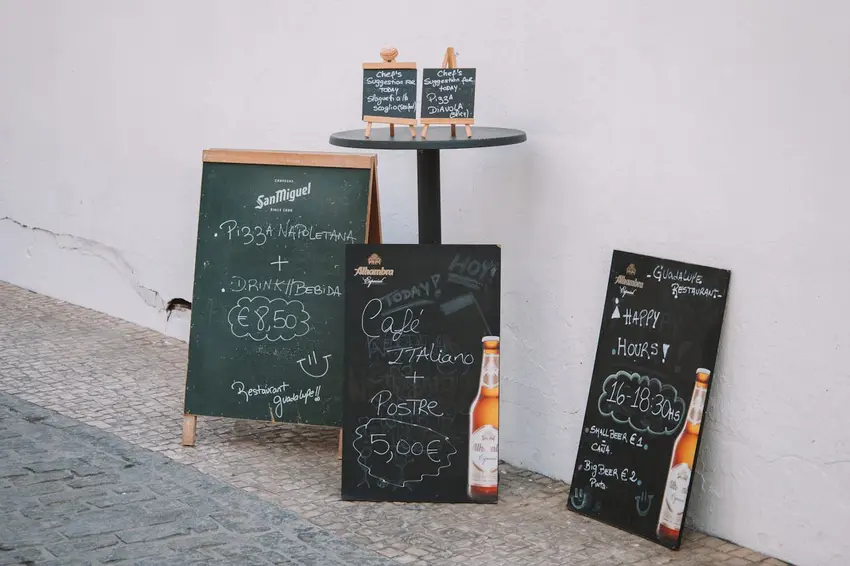 Chef's
Suggestion for
TODAY
scoglio
Chef's
Suggestion for
TODAY.
Pizza
DiAVOLA
(SPICY)
CERVEZAS
SanMiguel
SINCE 1890
. Pizza NAPOLETANA
+
. DRINK//BEBIDA
€8,50
Restaurant
guadalupe!!
Alhambra
Especial
TODAY!
HOY!
Café
ITALiano
+
POSTRE
5,00€
Alhambra
Especial
- GUADALUPE
RESTAURANT -
HAPPY
. HOURS!
16-18:30HS
. SMALL BEER €1.
CAÑA.
. Big BEER € 2.
Pinta.